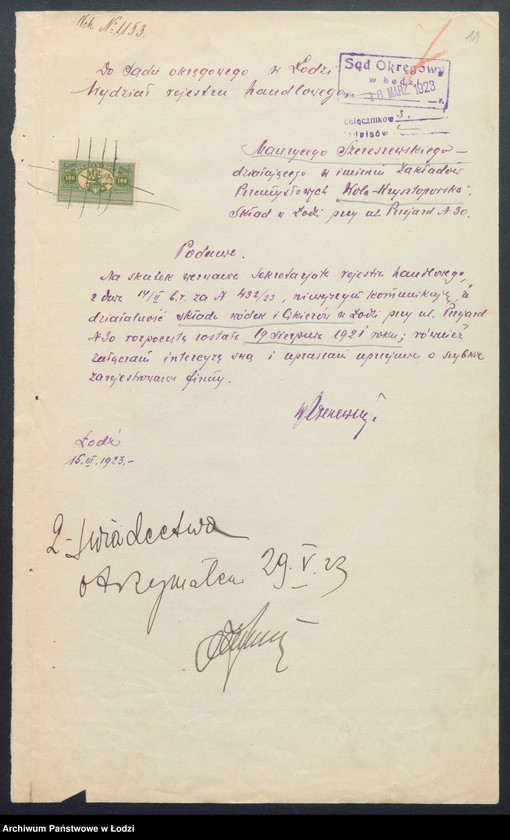 Rch. № 1153.
11
Do Sądu okręgowego w Łodzi
Wydział rejestru handlowego
Sąd Okręgowy
w Łodzi
16 MARZ 1923
r.
załączników 3.
odpisów
Maurycego Szereszewskiego –
działającego w imieniu Zakładów
Przemysłowych „Koło-Krysztoporska“.
Skład w Łodzi przy ul. Przejazd № 30.
100 100
Podanie.
Na skutek wezwania Sekretarjatu rejestru handlowego,
z dnia 14/II b.r. za № 432/23, niniejszym komunikuję, iż
działalność składu wódek i likierów w Łodzi przy ul. Przejazd
№ 30 rozpoczętą została 19 sierpnia 1921 roku; również
załączam intercyzę swą i upraszam uprzejmie o szybkie
zarejestrowanie firmy.
Łódź
15.III.1923.–
2 świadectwa
otrzymałem 29.V.23
Archiwum Państwowe w Łodzi